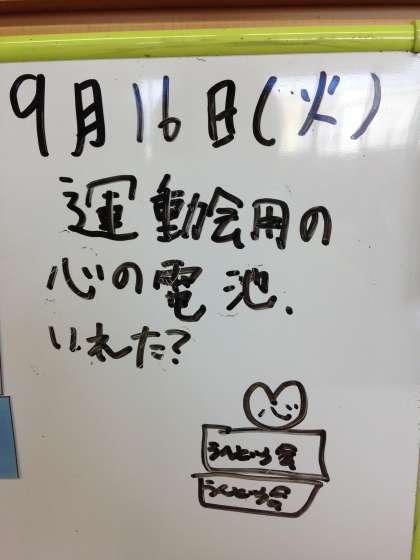 9月16日(火)
運動会用の
心の電池、
いれた?
うんどう会
うんどう会